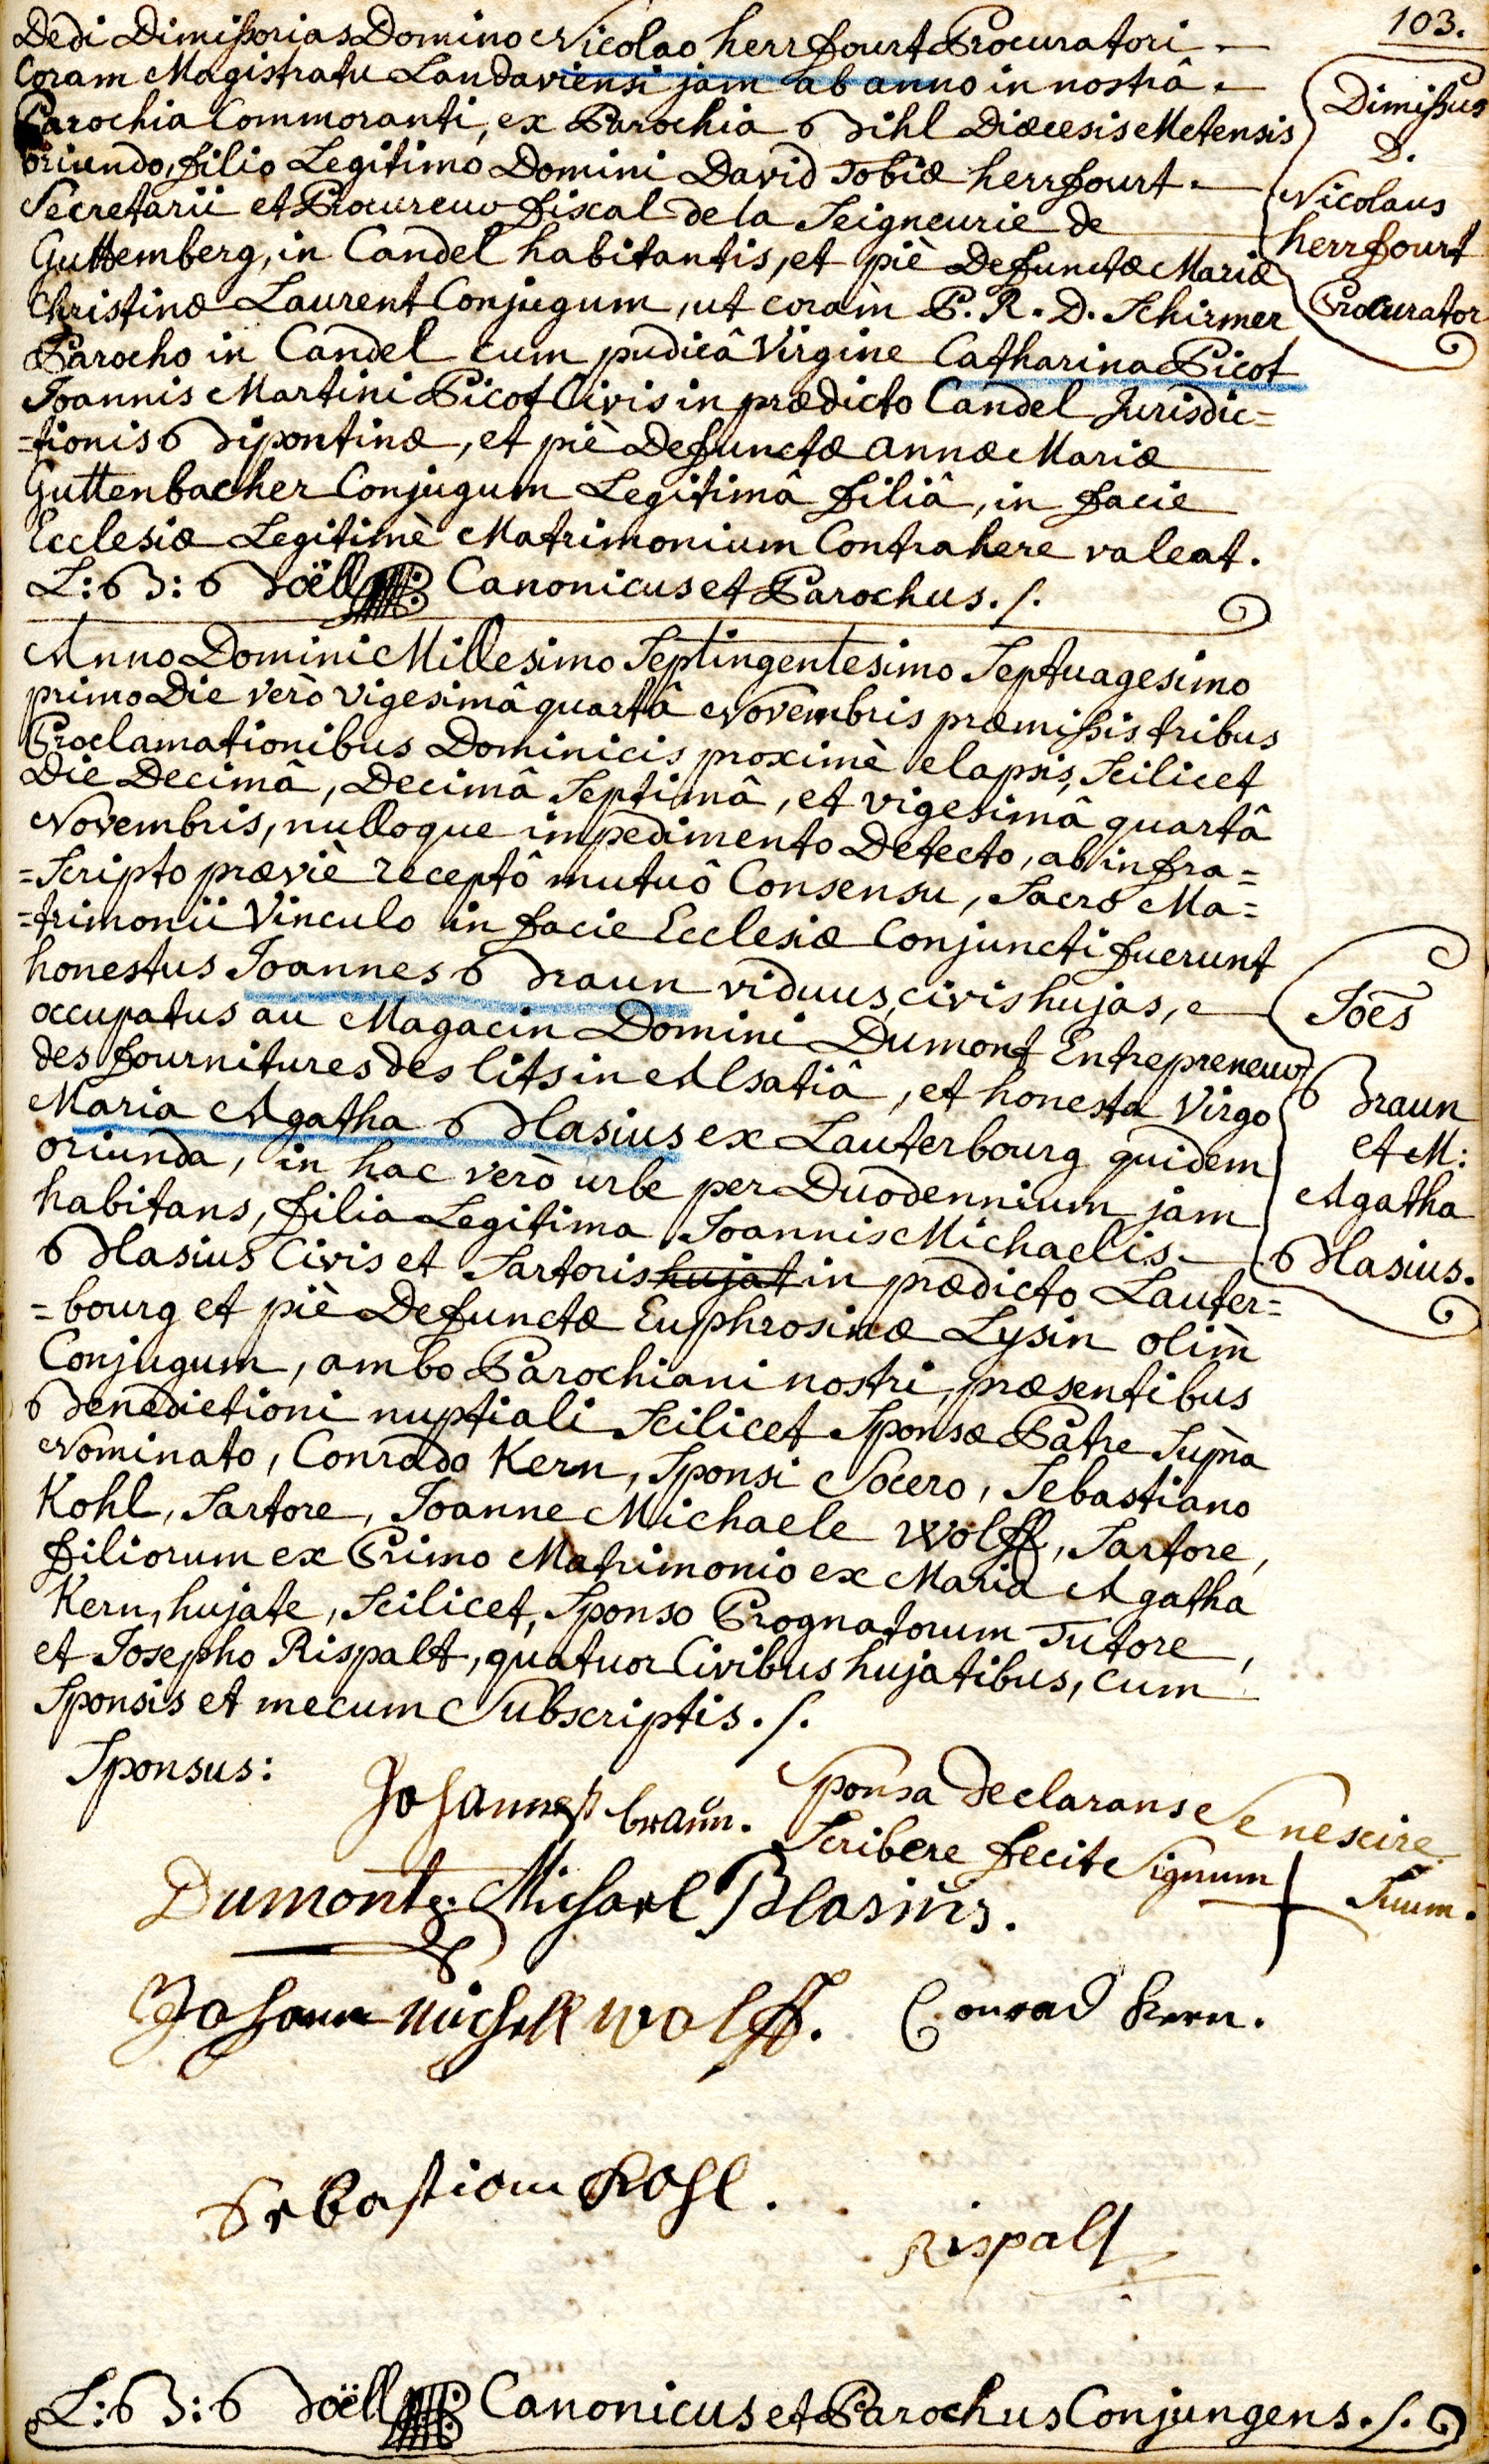 103.
Dedi Dimissorias Domino Nicolao herrfourt Procuratori
Coram Magistratu Landaviensi jam ab anno in nostrâ
Parochia Commoranti, ex Parochia Bihl Diœcesis Metensis
oriundo, filio Legitimo Domini David Tobiæ herrfourt
Secretarii et Procureur fiscal de la Seigneurie de
Guttemberg, in Candel habitantis, et piè Defunctæ Mariæ
Christinæ Laurent Conjugum, ut coram P. R. D. Schirmer
Parocho in Candel cum pudicâ Virgine Catharina Picot
Joannis Martini Picot Civis in prædicto Candel Jurisdic=
=tionis Bipontinæ, et piè Defunctæ annæ Mariæ
Guttenbacher Conjugum Legitimâ filiâ, in facie
Ecclesiæ Legitimè Matrimonium Contrahere valeat.
L: B: Boëll Canonicus et Parochus. /.
Dimissus
D.
Nicolaus
herrfourt
Procurator
Anno Domini Millesimo Septingentesimo Septuagesimo
primo Die verò vigesimâ quartâ Novembris præmissis tribus
Proclamationibus Dominicis proximè elapsis, Scilicet
Die Decimâ, Decimâ Septimâ, et vigesimâ quartâ
Novembris, nulloque impedimento Detecto, ab infra=
=Scripto præviè receptô mutuô Consensu, Sacro Ma=
=trimonii Vinculo in facie Ecclesiæ Conjuncti fuerunt
honestus Joannes Braun viduus, civis hujas,
occupatus au Magacin Domini Dumont Entrepreneur
des fournitures des lits in Alsatiâ, et honesta Virgo
Maria Agatha Blasius ex Lauterbourg quidem
oriunda, in hac verò urbe per Duodennium jam
habitans, filia Legitima Joannis Michaelis
Blasius Civis et Sartoris hujat in prædicto Lauter=
=bourg et piè Defunctæ Euphrosinæ Lysin olim
Conjugum, ambo Parochiani nostri, præsentibus
Benedictioni nuptiali Scilicet Sponsæ Patre Supra
Nominato, Conrado Kern, Sponsi Socero, Sebastiano
Kohl, Sartore, Joanne Michaele Wolff, Sartore,
filiorum ex Primo Matrimonio ex Maria Agatha
Kern, hujate, Scilicet, Sponso Prognatorum Tutore,
et Josepho Rispalt, quatuor Civibus hujatibus, cum
Sponsis et mecum Subscriptis. /.
Joes
Braun
et M:
Agatha
Blasius.
Sponsus: Johannes braun. Sponsa declarans Se nescire
Scribere fecit Signum + Suum.
Dumont Michael Blasius.
Johann Michell Wolff. Conrad Kern.
Sebastian Kohl.
Rispalt
L: B: Boëll Canonicus et Parochus Conjungens. /.